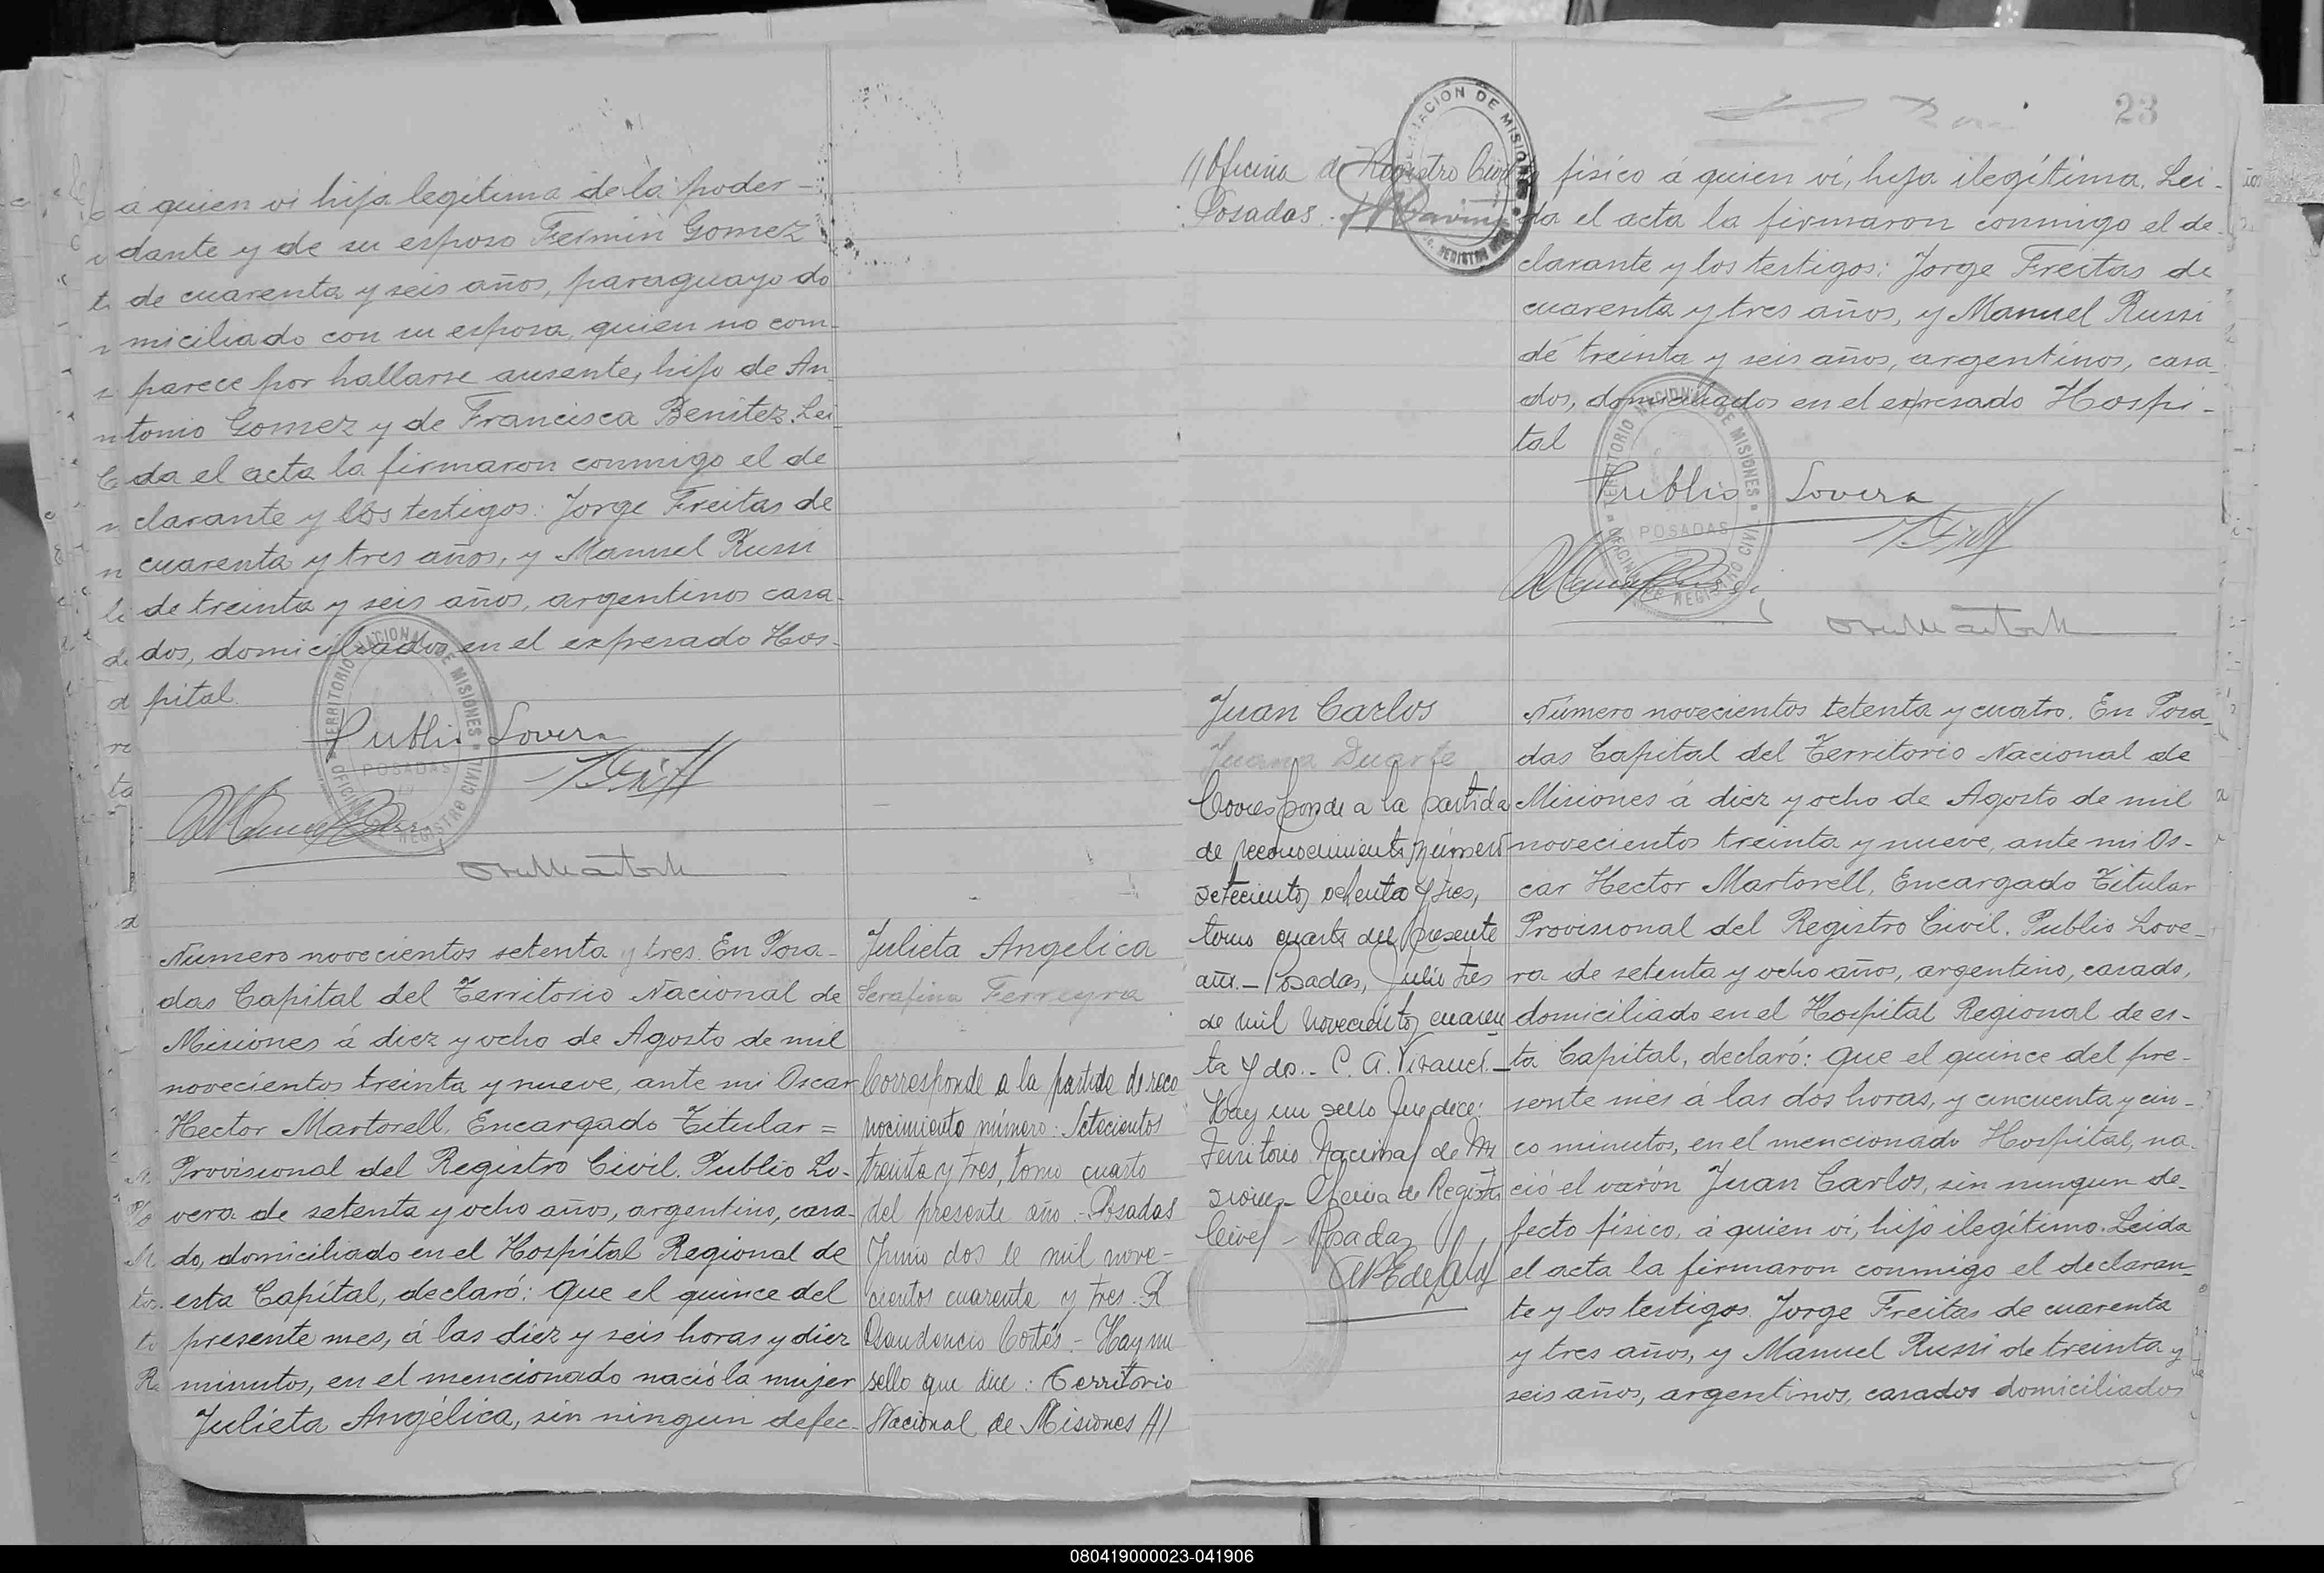 á quien vi hija legítima de la poder-
dante y de su esposo Fermin Gomez
de cuarenta y seis años, paraguayo do
miciliado con su esposa, quien no com-
parece por hallarse ausente, hijo de An-
tonio Gomez y de Francisca Benitez. Lei-
da el acta la firmaron conmigo el de
clarante y los testigos: Jorge Freitas de
cuarenta y tres años, y Manuel Russi
de treinta y seis años, argentinos casa-
dos, domiciliados en el expresado Hos-
pital.
TERRITORIO NACIONAL DE MISIONES
OFICINA DE REGISTRO CIVIL
POSADAS
Publio Lovera
Número novecientos setenta y tres. En Posa-
das Capital del Territorio Nacional de
Misiones á diez y ocho de Agosto de mil
novecientos treinta y nueve, ante mi Oscar
Hector Martorell, Encargado Titular =
Provisional del Registro Civil. Publio Lo-
vera de setenta y ocho años, argentino, casa-
do, domiciliado en el Hospítal Regional de
esta Capítal, declaró: Que el quince del
presente mes, á las diez y seis horas y diez
minutos, en el mencionado nació la mujer
Julieta Angélica, sin ningun defec-
Julieta Angelica
Serafina Ferreyra
Corresponde a la partida de reco
nocimiento número: Setecientos
treinta y tres, tomo cuarto
del presente año.- Posadas
Junio dos de mil nove-
cientos cuarenta y tres. R
Gaudencio Cortés.- Hay un
sello que dice: Territorio
Nacional de Misiones //
23
// Oficina de Registro Civil
Posadas.
físico á quien vi, hija ilegítima. Lei-
da el acta la firmaron conmigo el de-
clarante y los testigos: Jorge Freitas de
cuarenta y tres años, y Manuel Russi
de treinta y seis años, argentinos, casa-
dos, domiciliados en el expresado Hospi-
tal
TERRITORIO NACIONAL DE MISIONES
OFICINA DE REGISTRO CIVIL
POSADAS
Publio Lovera
Juan Carlos
Juana Duarte
Corresponde a la partida
de reconocimiento número
setecientos ochenta y tres,
tomo cuarto del presente
año.- Posadas, Julio tres
de mil novecientos cuaren
ta y do.- C. A.
Hay un sello que dice:
Territorio Nacional de Mi
siones- Oficina de Registro
Civil - Posadas
Número novecientos tetenta y cuatro. En Posa-
das Capital del Territorio Nacional de
Misiones á diez y ocho de Agosto de mil
novecientos treinta y nueve, ante mi Os-
car Hector Martorell, Encargado Titular
Provisional del Registro Civil. Publio Love-
ra de setenta y ocho años, argentino, casado,
domiciliado en el Hospital Regional de es-
ta Capital, declaró: que el quince del pre-
sente mes á las dos horas, y cincuenta y cin-
co minutos, en el mencionado Hospital, na-
ció el varón Juan Carlos, sin ningun de-
fecto físico, á quien vi, hijo ilegítimo. Leida
el acta la firmaron conmigo el declaran-
te y los testigos. Jorge Freitas de cuarenta
y tres años, y Manuel Russi de treinta y
seis años, argentinos, casados domiciliados
080419000023-041906